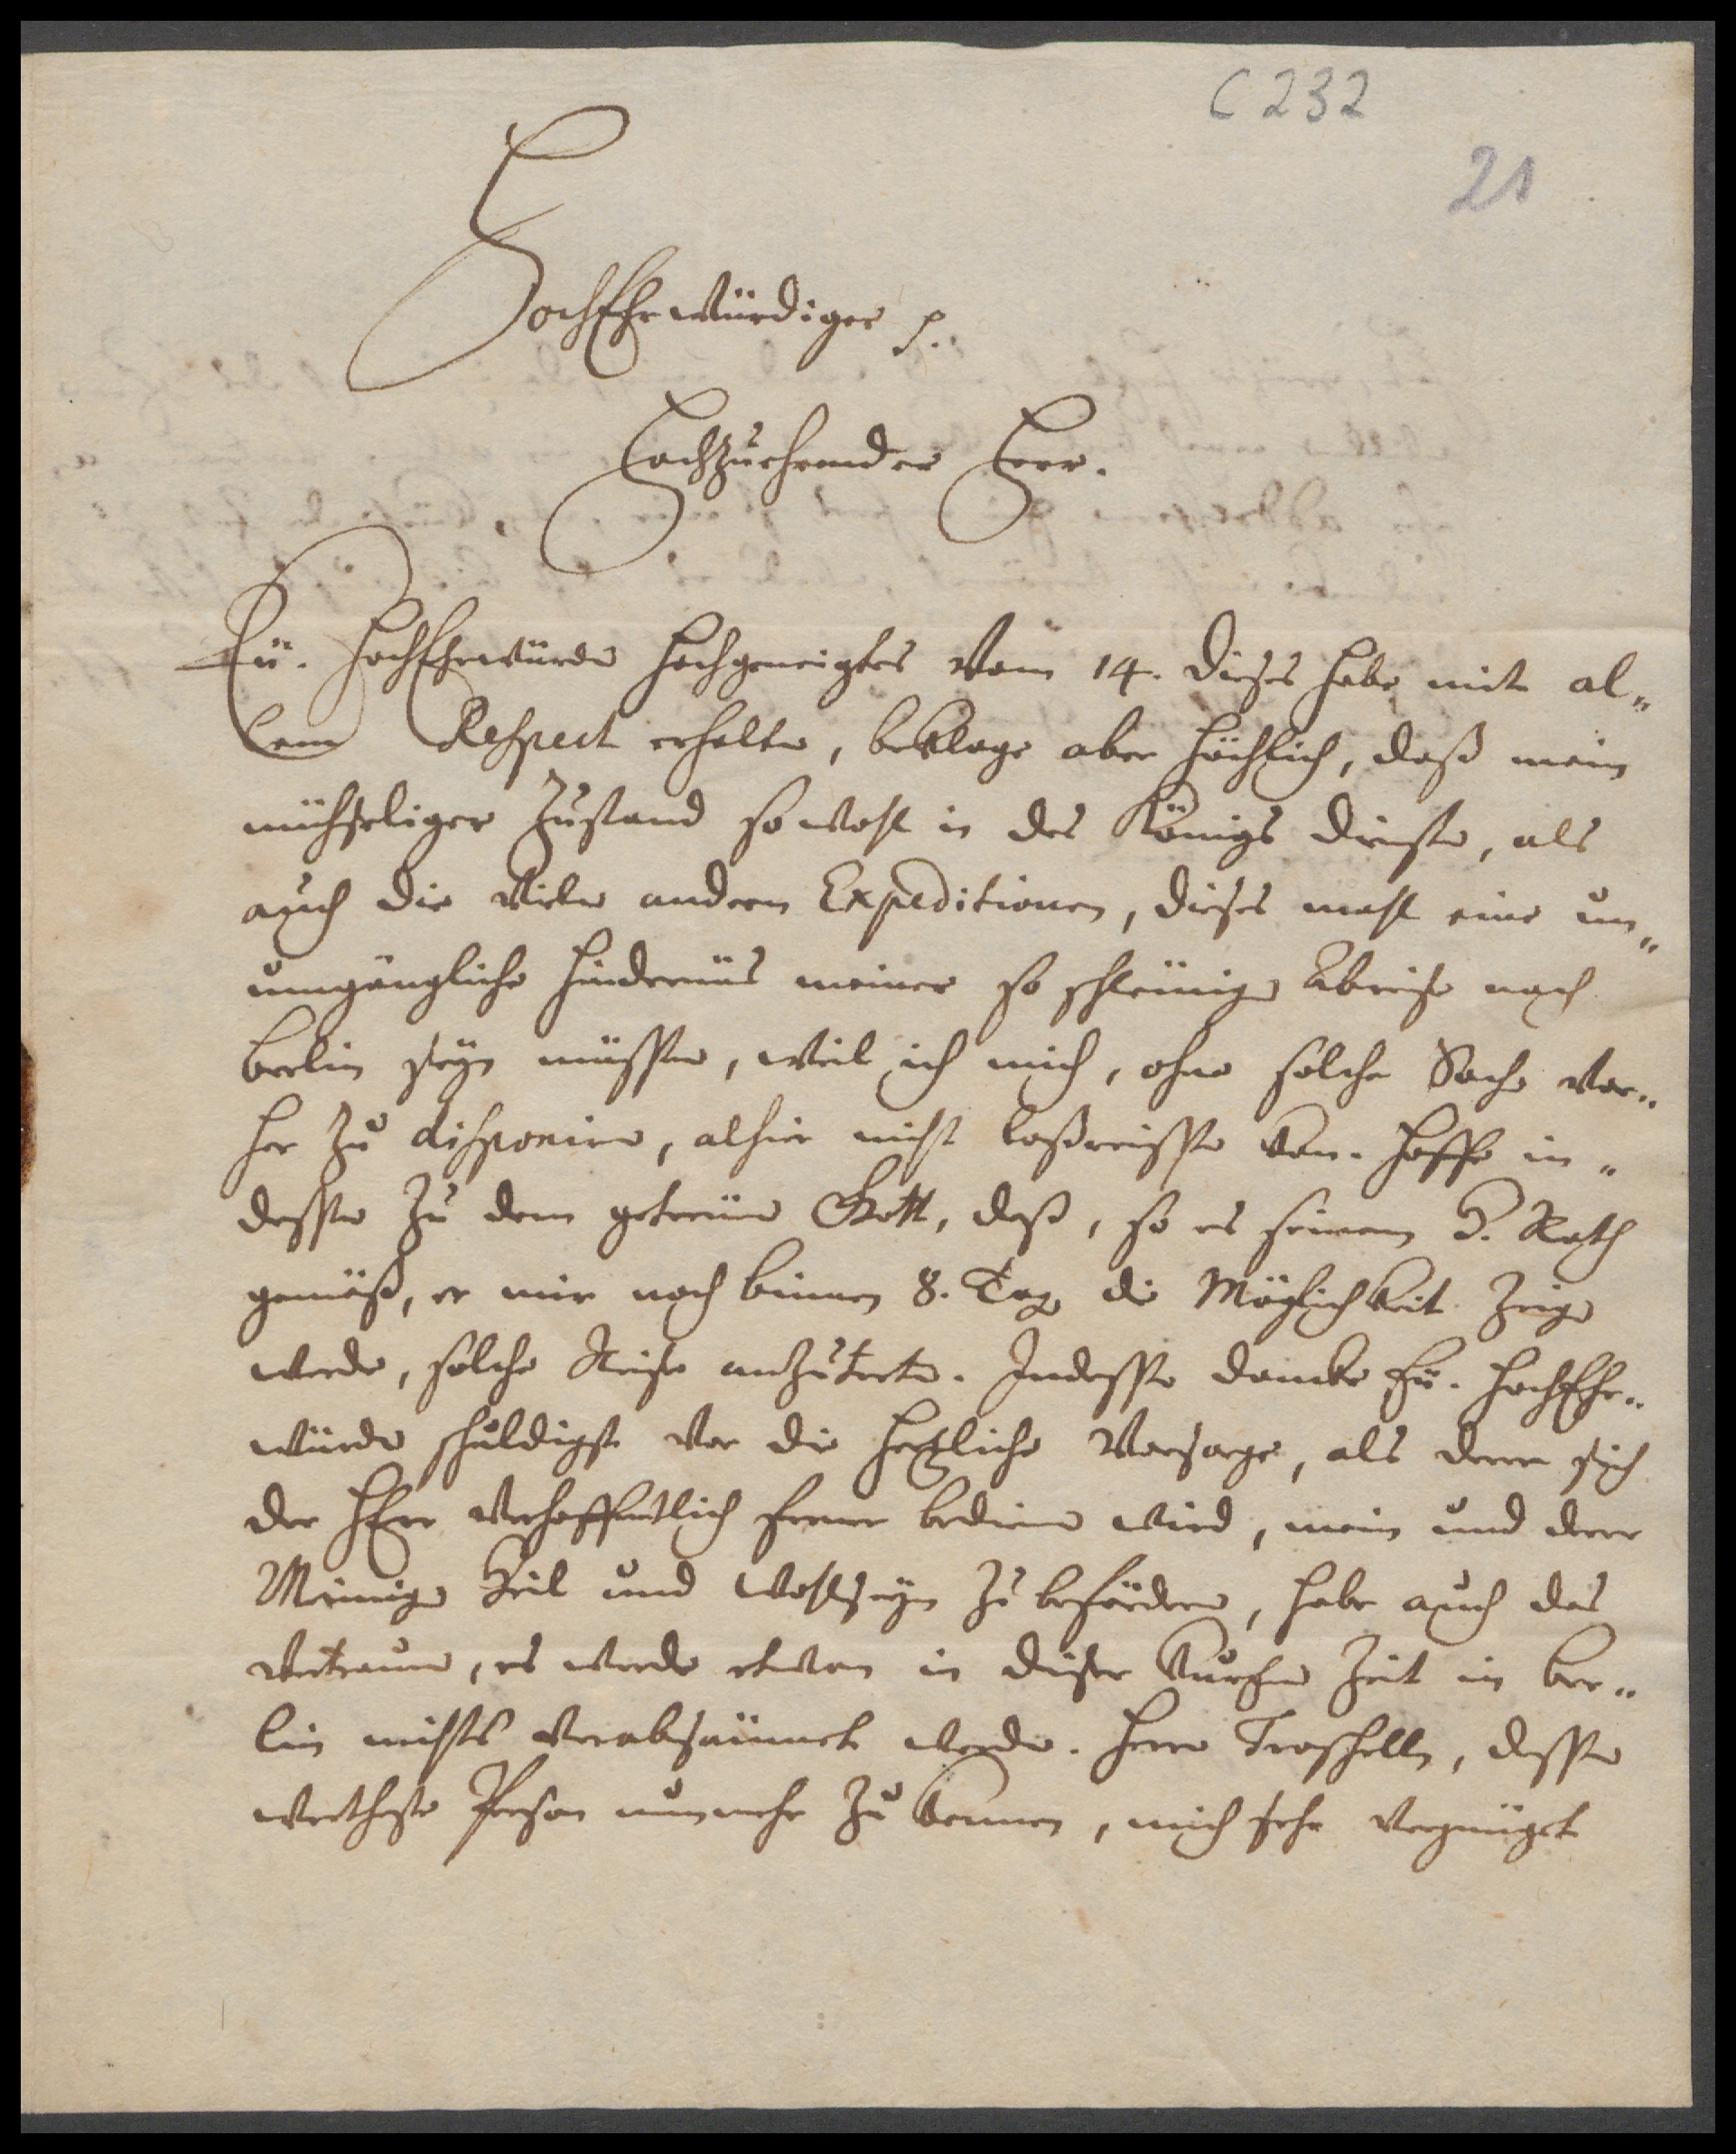 C 232
21
HochEhrwürdiger p.
Hochzuehrender Herr.
Eu. HochEhrwürden hochgeneigtes vom 14. dieses habe mit al„
lem Respect erhalten, beklage aber höchlich, daß mein
mühseliger Zustand so wohl in des Königs diensten, als
auch die vielen andern Expeditionen, dieses mahl eine un„
umgängliche hindernüs meiner so schleunigen Abreise nach
Berlin seyn müssen, weil ich mich, ohne solche Sache vor„
her zu disponiren, alhier nicht loßreissen kan. Hoffe in„
dessen zu dem getreuen Gott, daß, so es seinem H. Rath
gemäß, er mir noch binnen 8. Tag die Möglichkeit zeigen
werde, solche Reise anzutreten. Indessen dancke Eu. HochEhr„
würden schuldigst vor die hertzliche Vorsorge, als deren sich
der HErr verhoffentlich ferner bedienen wird, mein und derer
Meinigen Heil und wohlseyn zu befördern, habe auch das
vertrauen, es werde etwan in dieser kurtzen Zeit in Ber„
lin nichts verabsäumet werden. Herrn Troschelln, dessen
wertheste Person nunmehr zu kennen, mich sehr vergnüget